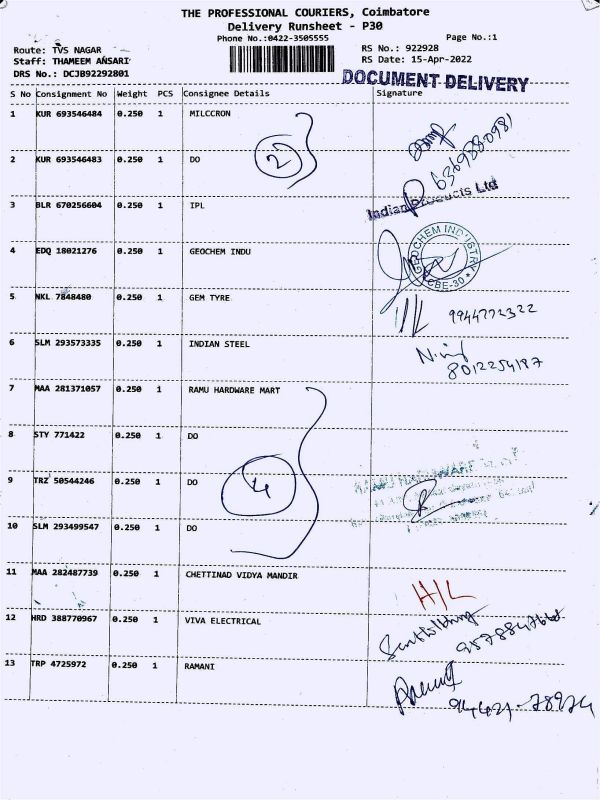 THE PROFESSIONAL COURIERS, Coimbatore
Delivery Runsheet - P30
Phone No.:0422-3505555
Page No.:1
Route: TVS NAGAR
RS No.: 922928
Staff: THAMEEM ANSARI
RS Date: 15-Apr-2022
DRS No.: DCJB92292801
DOCUMENT DELIVERY
S No Consignment No Weight PCS Consignee Details Signature
1 KUR 693546484 0.250 1 MILCCRON
2 KUR 693546483 0.250 1 DO
2
3 BLR 670256604 0.250 1 IPL
Indian Products Ltd
4 EDQ 18021276 0.250 1 GEOCHEM INDU
GEOCHEM INDUSTRY
CBE-30
5 NKL 7848480 0.250 1 GEM TYRE
9944772322
6 SLM 293573335 0.250 1 INDIAN STEEL
8012254187
7 MAA 281371057 0.250 1 RAMU HARDWARE MART
8 STY 771422 0.250 1 DO
9 TRZ 50544246 0.250 1 DO
4
10 SLM 293499547 0.250 1 DO
11 MAA 282487739 0.250 1 CHETTINAD VIDYA MANDIR
H/L
12 HRD 388770967 0.250 1 VIVA ELECTRICAL
13 TRP 4725972 0.250 1 RAMANI
94421-78974